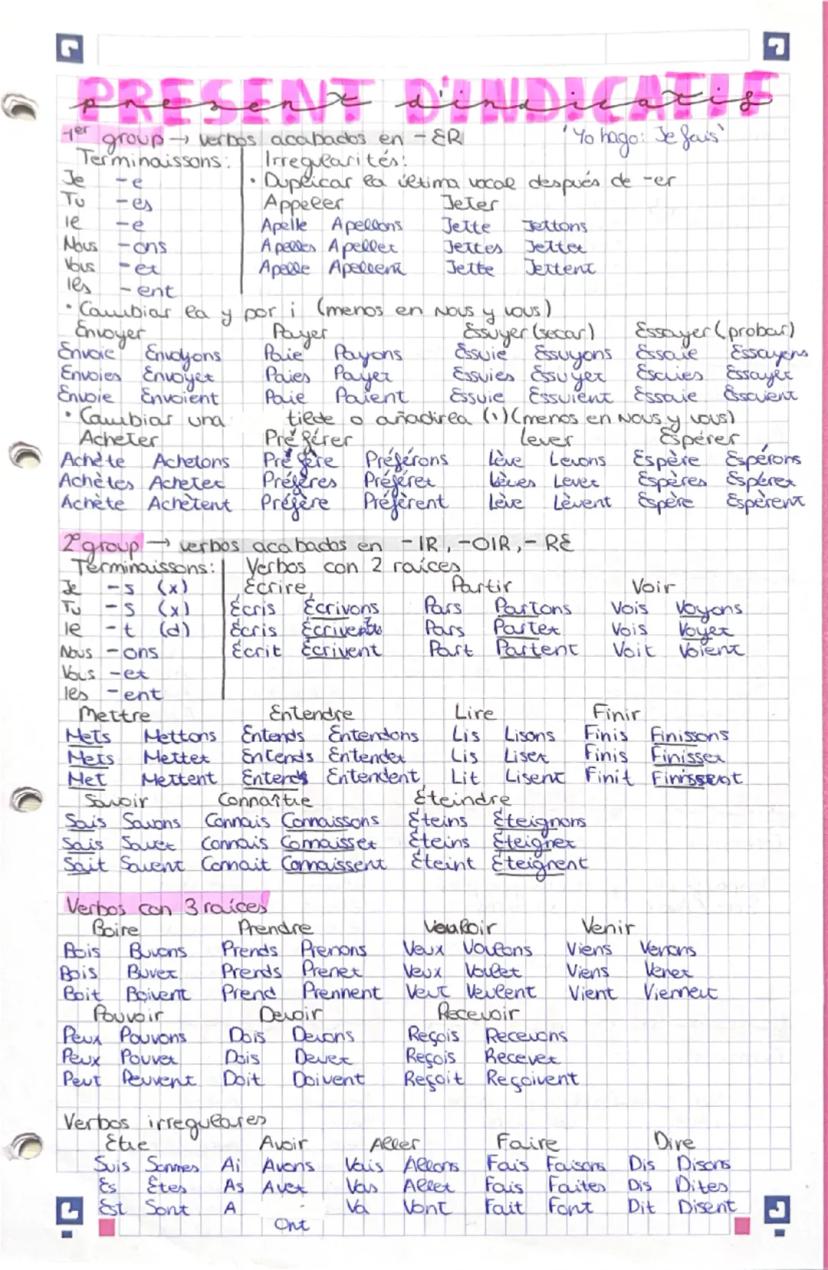 PRESENT D'INDICATIF
present d'indicatif
1er group → verbos acabados en -ER 'Yo hago: Je fais'
Terminaissons: Irregularités:
Je -e · Duplicar la última vocal después de -er
Tu -es Appeler Jeter
le -e Apelle Apellons Jette Jettons
Nous -ons Apelles Apellez Jettes Jettez
Vous -ez Apelle Apellent Jette Jettent
les -ent
· Cambiar la y por i (menos en Nous y vous)
Envoyer Payer Essuyer (secar) Essayer (probar)
Envoie Envoyons Paie Payons Essuie Essuyons Essaie Essayons
Envoies Envoyez Paies Payez Essuies Essuyez Escuies Essayez
Envoie Envoient Paie Paient Essuie Essuient Essaie Essaient
· Cambiar una tilde o añadirla (\) (menos en Nous y vous)
Acheter Préférer Lever Espérer
Achète Achetons Préfère Préférons Lève Levons Espère Espérons
Achètes Achetez Préfères Préférez Lèves Levez Espères Espérez
Achète Achètent Préfère Préfèrent Lève Lèvent Espère Espèrent
2º group → verbos acabados en -IR, -OIR, -RE
Terminaissons: Verbos con 2 raíces
Je -s (x) Écrire Partir Voir
Tu -s (x) Écris Écrivons Pars Partons Vois Voyons
le -t (d) Écris Pars Partez Vois Voyez
Nous -ons Écrit Écrivent Part Partent Voit Voient
Vous -ez
les -ent
Mettre Entendre Lire Finir
Mets Mettons Entends Entendons Lis Lisons Finis Finissons
Mets Mettez Entends Entendez Lis Lisez Finis Finissez
Met Mettent Entends Entendent Lit Lisent Finit Finissent
Savoir Connaître Éteindre
Sais Savons Connais Connaissons Éteins Éteignons
Sais Savez Connais Connaissez Éteins Éteignez
Sait Savent Connait Connaissent Éteint Éteignent
Verbos con 3 raíces
Boire Prendre Vouloir Venir
Bois Buvons Prends Prenons Veux Voulons Viens Venons
Bois Buvez Prends Prenez Veux Voulez Viens Venez
Boit Boivent Prend Prennent Veut Veulent Vient Viennent
Pouvoir Devoir Recevoir
Peux Pouvons Dois Devons Reçois Recevons
Peux Pouvez Dois Devez Reçois Recevez
Peut Peuvent Doit Doivent Reçoit Reçoivent
Verbos irregulares
Être Avoir Aller Faire Dire
Suis Sommes Ai Avons Vais Allons Fais Faisons Dis Disons
Es Êtes As Avez Vas Allez Fais Faites Dis Dites
Est Sont A Va Vont Fait Font Dit Disent
Ont